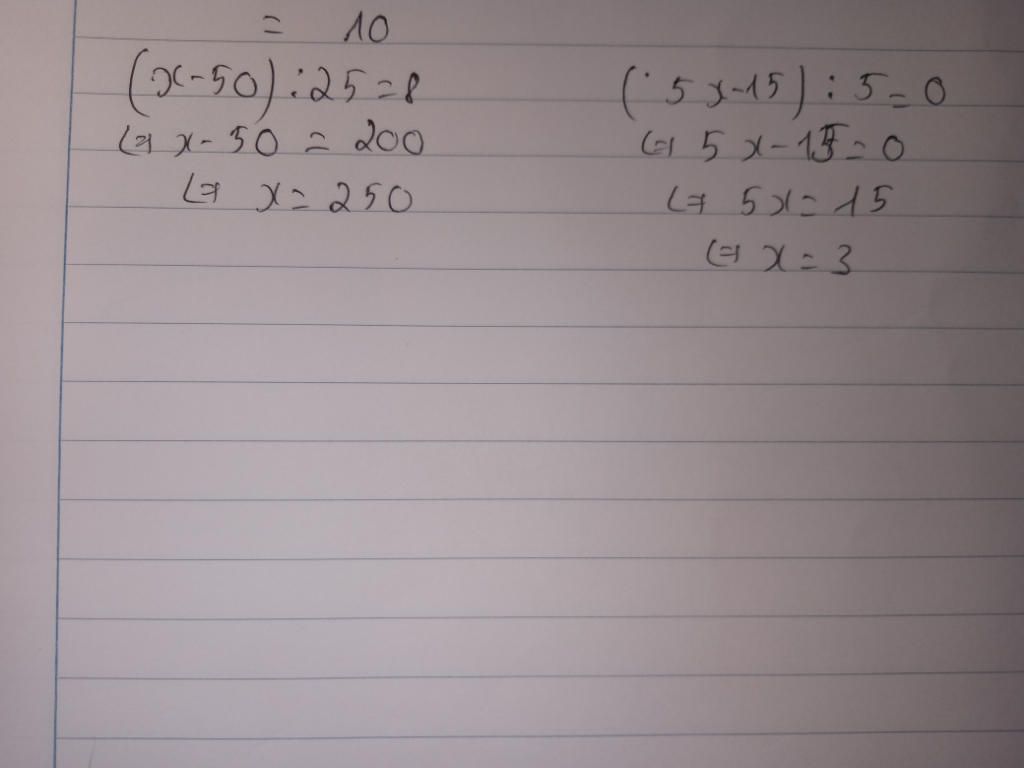 = 10
(x-50) : 25 = 8
⇔ x - 50 = 200
⇔ x = 250
(5x-15) : 5 = 0
⇔ 5x - 15 = 0
⇔ 5x = 15
⇔ x = 3